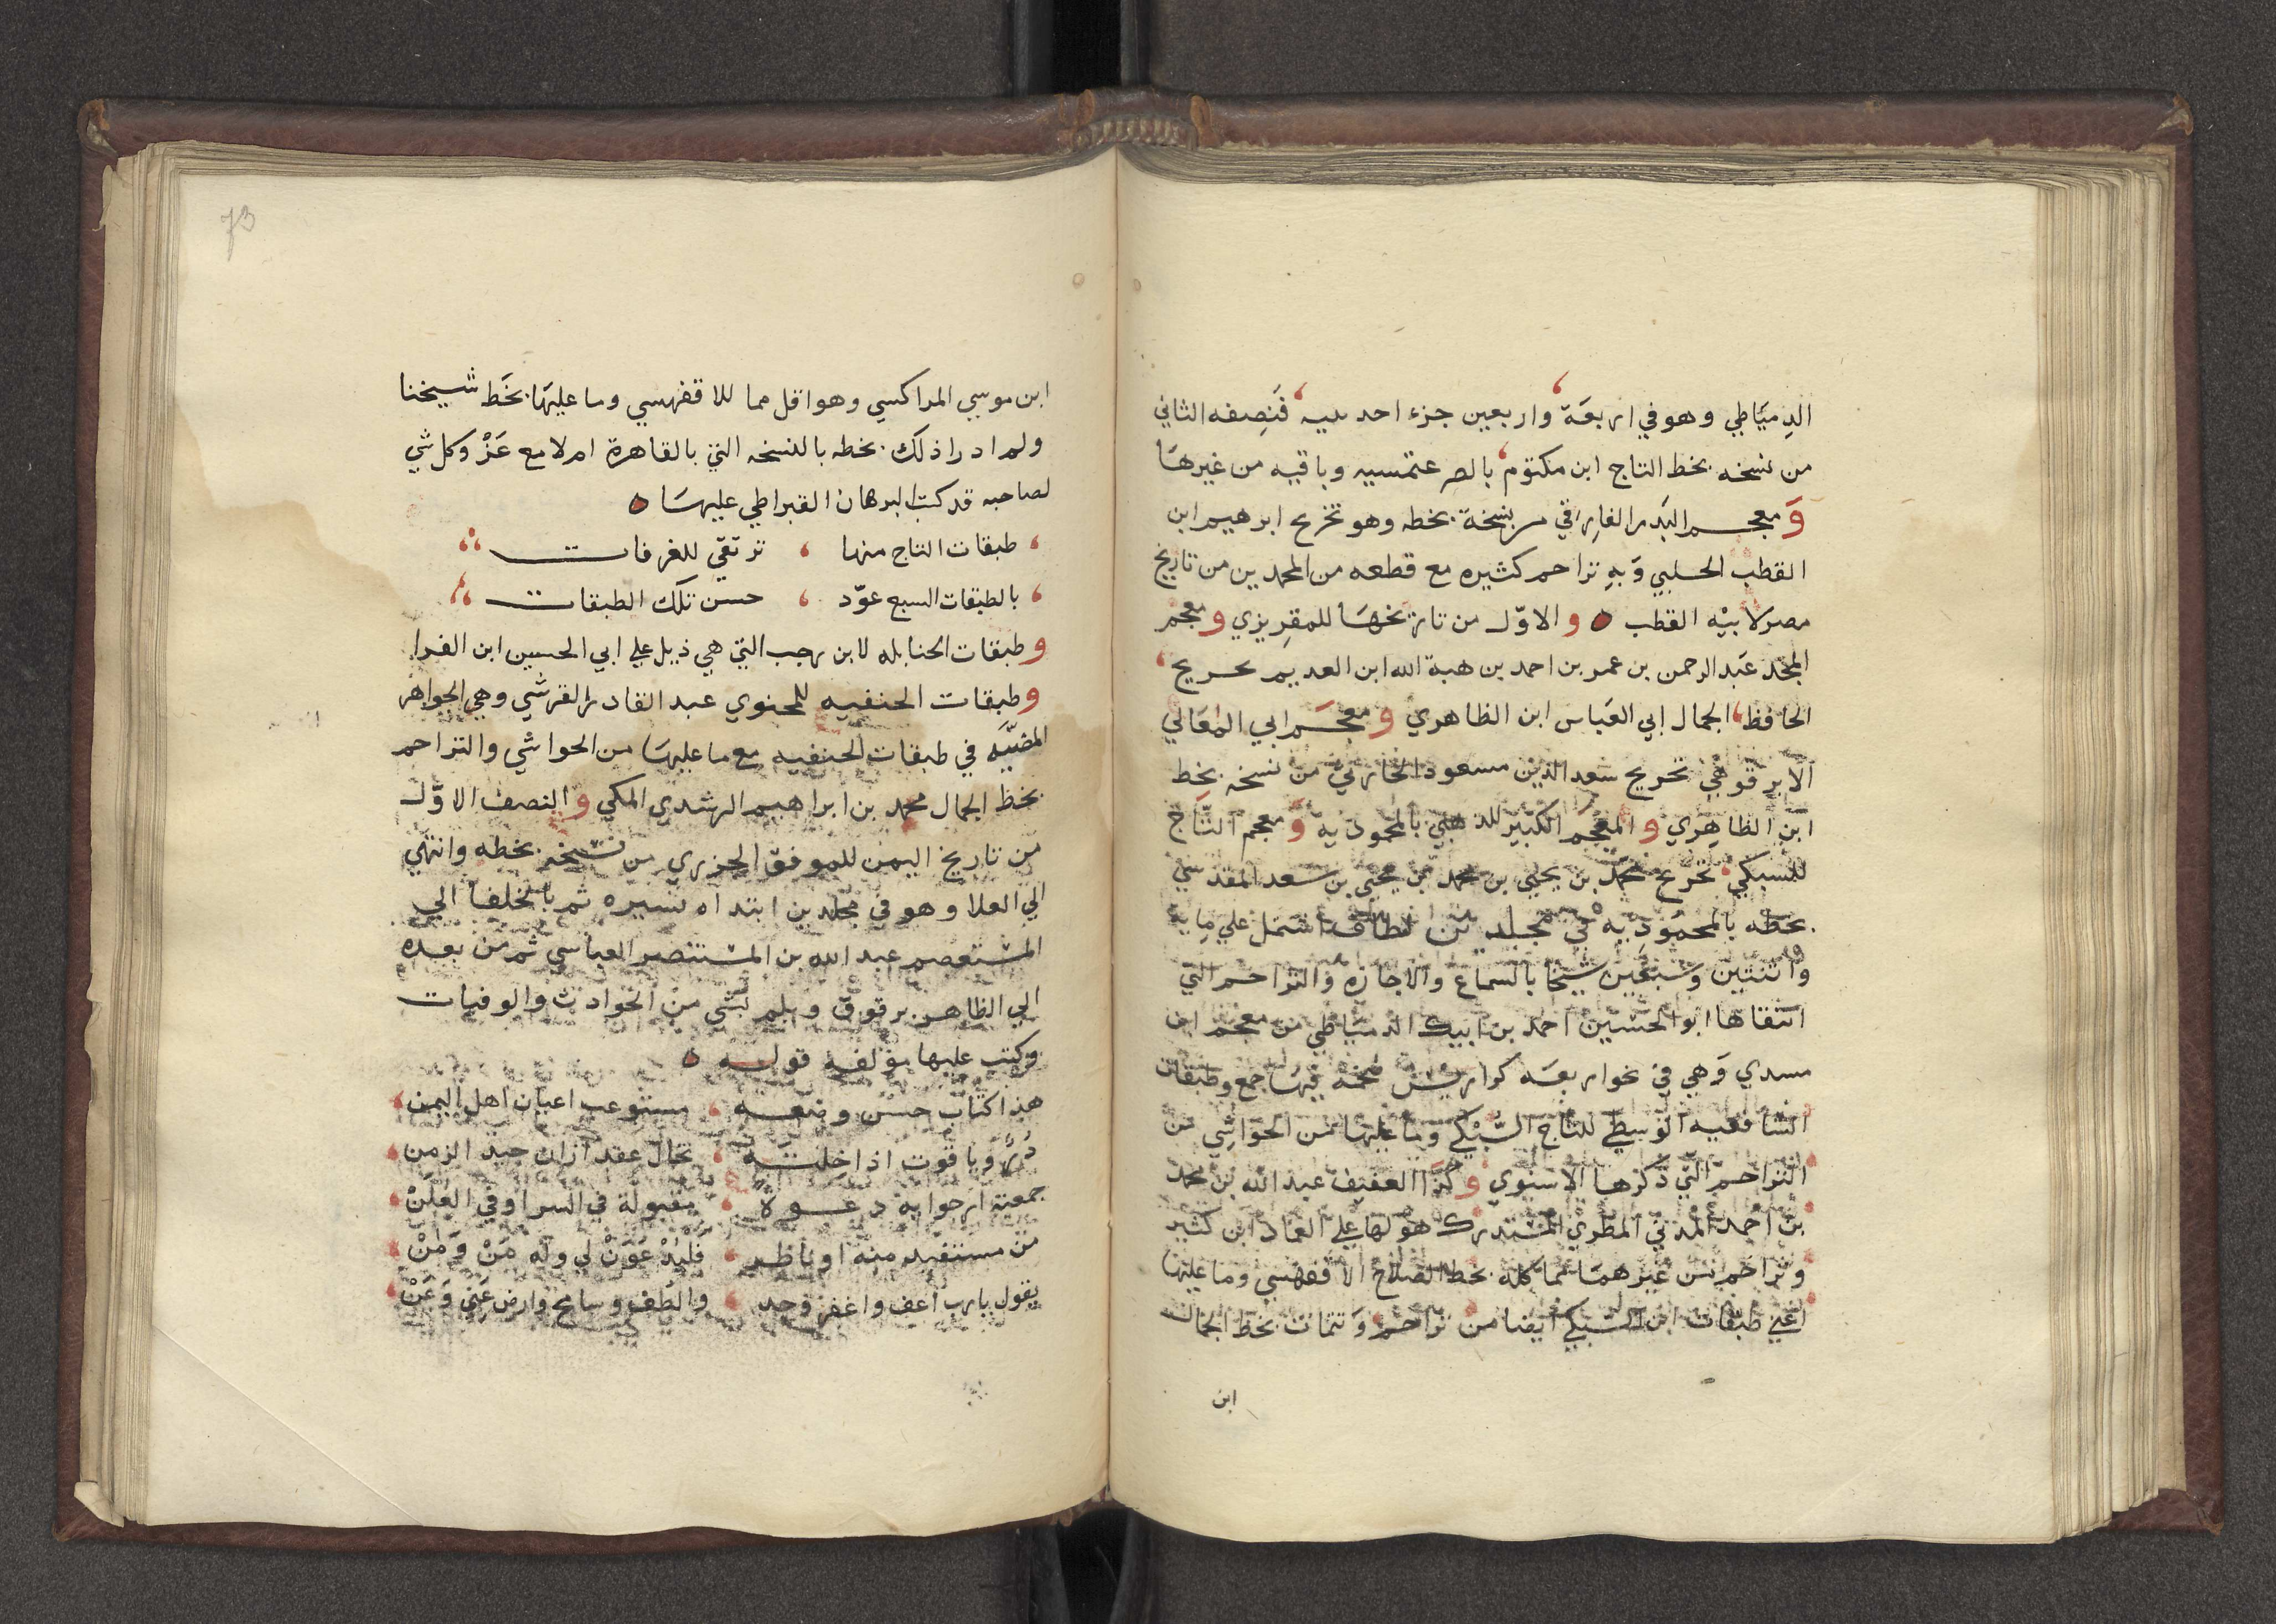 الدمياطي وهو في اربعة واربعين جزء احد فنصفه الثاني
من نسخه بخط التاج ابن مكتوم وباقيه من غيرها
و معجم البدر الفارقي بنسخة بخطه وهو تخريج ابرهيم ابن
القطب الحلبي وبه تراجم كثيره مع قطعه من المحمدين من تاريخ
مصر لابيه القطب و الاول من تاريخها للمقريزي و معجم
المجد عبد الرحمن بن عمر بن احمد بن هبة الله ابن العديم تخريج
الحافظ الجمال ابي العباس ابن الظاهري و معجم ابي المعالي
الابرقوهي تخريج سعد الدين مسعود الحارثي من نسخه بخط
ابن الظاهري و المعجم الكبير للذهبي بالمحمودية و معجم التاج
للسبكي تخريج محمد بن يحيى بن محمد بن يحيى بن سعد المقدسي
بخطه بالمحموديه في مجلد اشتمل علي مايه
واثنتين وسبعين شيخا بالسماع والاجازه والتراجم التي
انتقاها ابو الحسين احمد بن ايبك الدمياطي من معجم ابن
مسدي وهي في نحو اربعه كراريس ضخمه فيها جمع وطبقات
الشافعيه الوسطي للتاج السبكي وما عليها من الحواشي من
التراجم التي ذكرها الاسنوي و كذا العفيف عبد الله بن محمد
بن احمد المدني المطري المستدرك هو لها علي العماد ابن كثير
وتراجم من غيرهما مما كله بخط الصلاح الاقفهسي وما عليها
اعني طبقات ابن السبكي ايضا من تراجم وتتمات بخط الجمال
ابن
73
ابن موسي المراكسي وهو اقل مما للاقفهسي وما عليها بخط شيخنا
ولم ادر اذلك بخطه بالنسخه التي بالقاهرة ام لا مع عز وكل شي
لصاحبه قد كتب البرهان القيراطي عليها
طبقات التاج منها ترتقي للغرفات
بالطبقات السبع عوّد حسن تلك الطبقات
و طبقات الحنابله لابن رجب التي هي ذيل علي ابي الحسين ابن الفرا
و طبقات الحنفيه للمحنوي عبد القادر القرشي وهي الجواهر
المضيّه في طبقات الحنفيه مع ما عليها من الحواشي والتراجم
بخط الجمال محمد بن ابراهيم المرشدي المكي و النصف الاول
من تاريخ اليمن للموفق الخزرجي من نسخه بخطه وانتهي
الي العلا وهو في مجلدين ابتداه بسيره ثم بالخلفا الي
المستعصم عبد الله بن المستنصر العباسي ثم من بعده
الي الظاهر برقوق ويلم بشي من الحوادث والوفيات
وكتب عليها مؤلفه قوله
هذا كتاب حسن وضعه مستوعب اعيان اهل اليمن
در وياقوت اذا خلته تخال عقد ازان جيد الزمن
جمعته ارجوا به دعوة مقبولة في السر او في العلن
من مستفيد منه او ناظر فليدعون لي وله من ومن
يقول يارب اعف واغفر وجد والطف وسامح وارض عني وعن